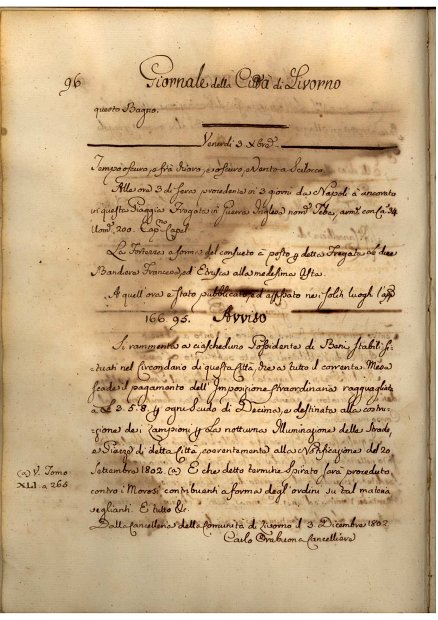 96 Giornale della Città di Livorno
questo Bagno.
Venerdì 3 Xbre.
Tempo oscuro, e frà nuovo, e oscuro, e Vento a Scilocco
Alle ore 3 di sera procedente in 3 giorni da Napoli è ancorato
in questa Piaggia Fregata in Guerra Inglese nom.
Uom. 200. Cap.
La Fortezza a forma del consueto à posto detta Fregata
Bandiera Francese, ed Etrusca alla medesima Asta.
A quell'ora è stato pubblicato, ed affissato nei soliti luoghi l'app
166 95. Avviso
Si rammenta a ciaschedun Possidente di Beni stabili si-
tuati nel Circondario di questa Città, che a tutto il corrente Mese
scade il pagamento dell'Imposizione straordinaria ragguagliata
a £ 3. 5. 8 ogni Scudo di Decima, e destinata alla costru-
zione dei Lampioni La notturna Illuminazione delle Strade
e Piazze di detta Città, coerentemente alla Notificazione del 20
Settembre 1802. (a) E che detto termine spirato sarà proceduto
(a) V. Tomo
XLI. a 265.
contro i Morosi contribuenti a forma degl'ordini su tal materia
veglianti. E tutto &c.
Dalla Cancelleria della Comunità di Livorno il 3 Dicembre 1802
Carlo Cancelliere